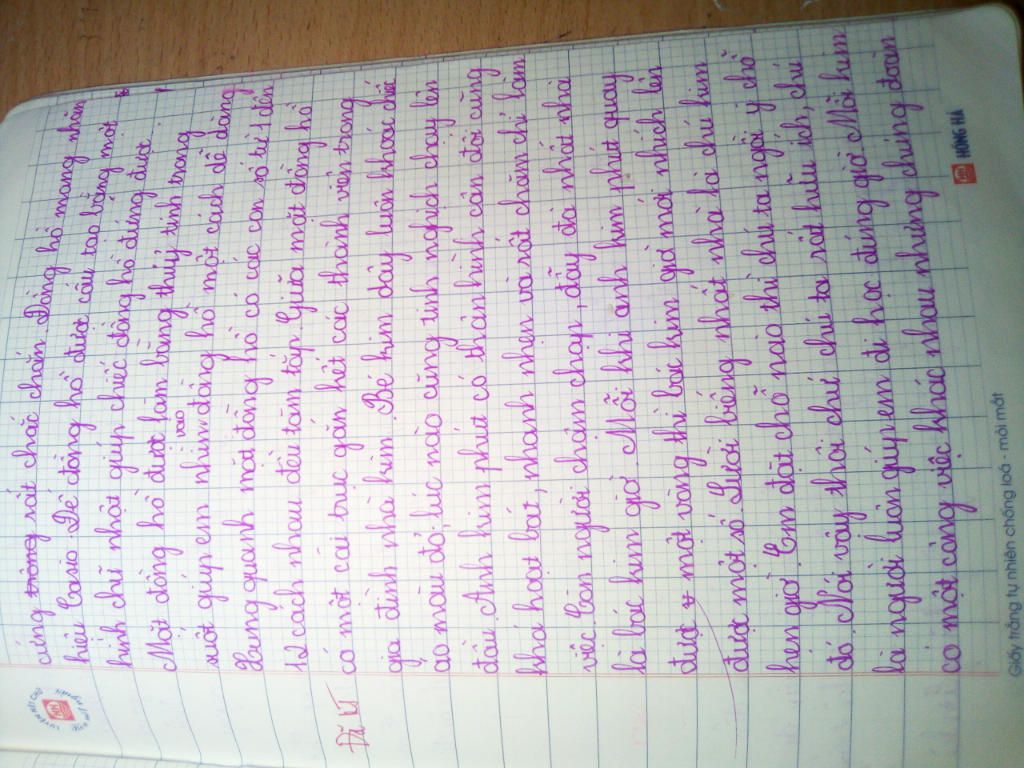 cũng trông rất chắc chắn. Đồng hồ mang nhãn
hiệu Casio. Đế đồng hồ đượt cấu tạo bằng một
hình chữ nhật giúp chiếc đồng hồ đứng đượt.
Mặt đồng hồ được làm bằng thuỷ tinh trong
suốt giúp em nhìn vào đồng hồ một cách dễ dàng
Xung quanh mặt đồng hồ có các con số từ 1 đến
12 cách nhau đều tăm tắp. Giữa mặt đồng hồ
có một cái trục gắn hết các thành viên trong
gia đình nhà kim. Bé kim dây luôn khoác chiếc
áo màu đỏ, lúc nào cũng tinh nghịch chạy lên
đầu. Anh kim phút có thân hình cân đối cũng
khá hoạt bát, nhanh nhẹn và rất chăm chỉ làm
việc. Còn người chậm chạp, đầy đà nhất nhà
là bác kim giờ. Mỗi khi anh kim phút quay
được một vòng thì bác kim giờ mới nhích lên
được một số. Lười biếng nhất nhà là chú kim
hẹn giờ. Em đặt chỗ nào thì chú ta ngồi ỳ chỗ
đó. Nói vậy thôi chứ chú ta rất hữu ích, chú
là người luôn giúp em đi học đúng giờ. Mỗi kim
có một công việc khác nhau nhưng chúng đoàn
Đã kí
HỒNG HÀ
Giấy trắng tự nhiên chống loá - mỏi mắt